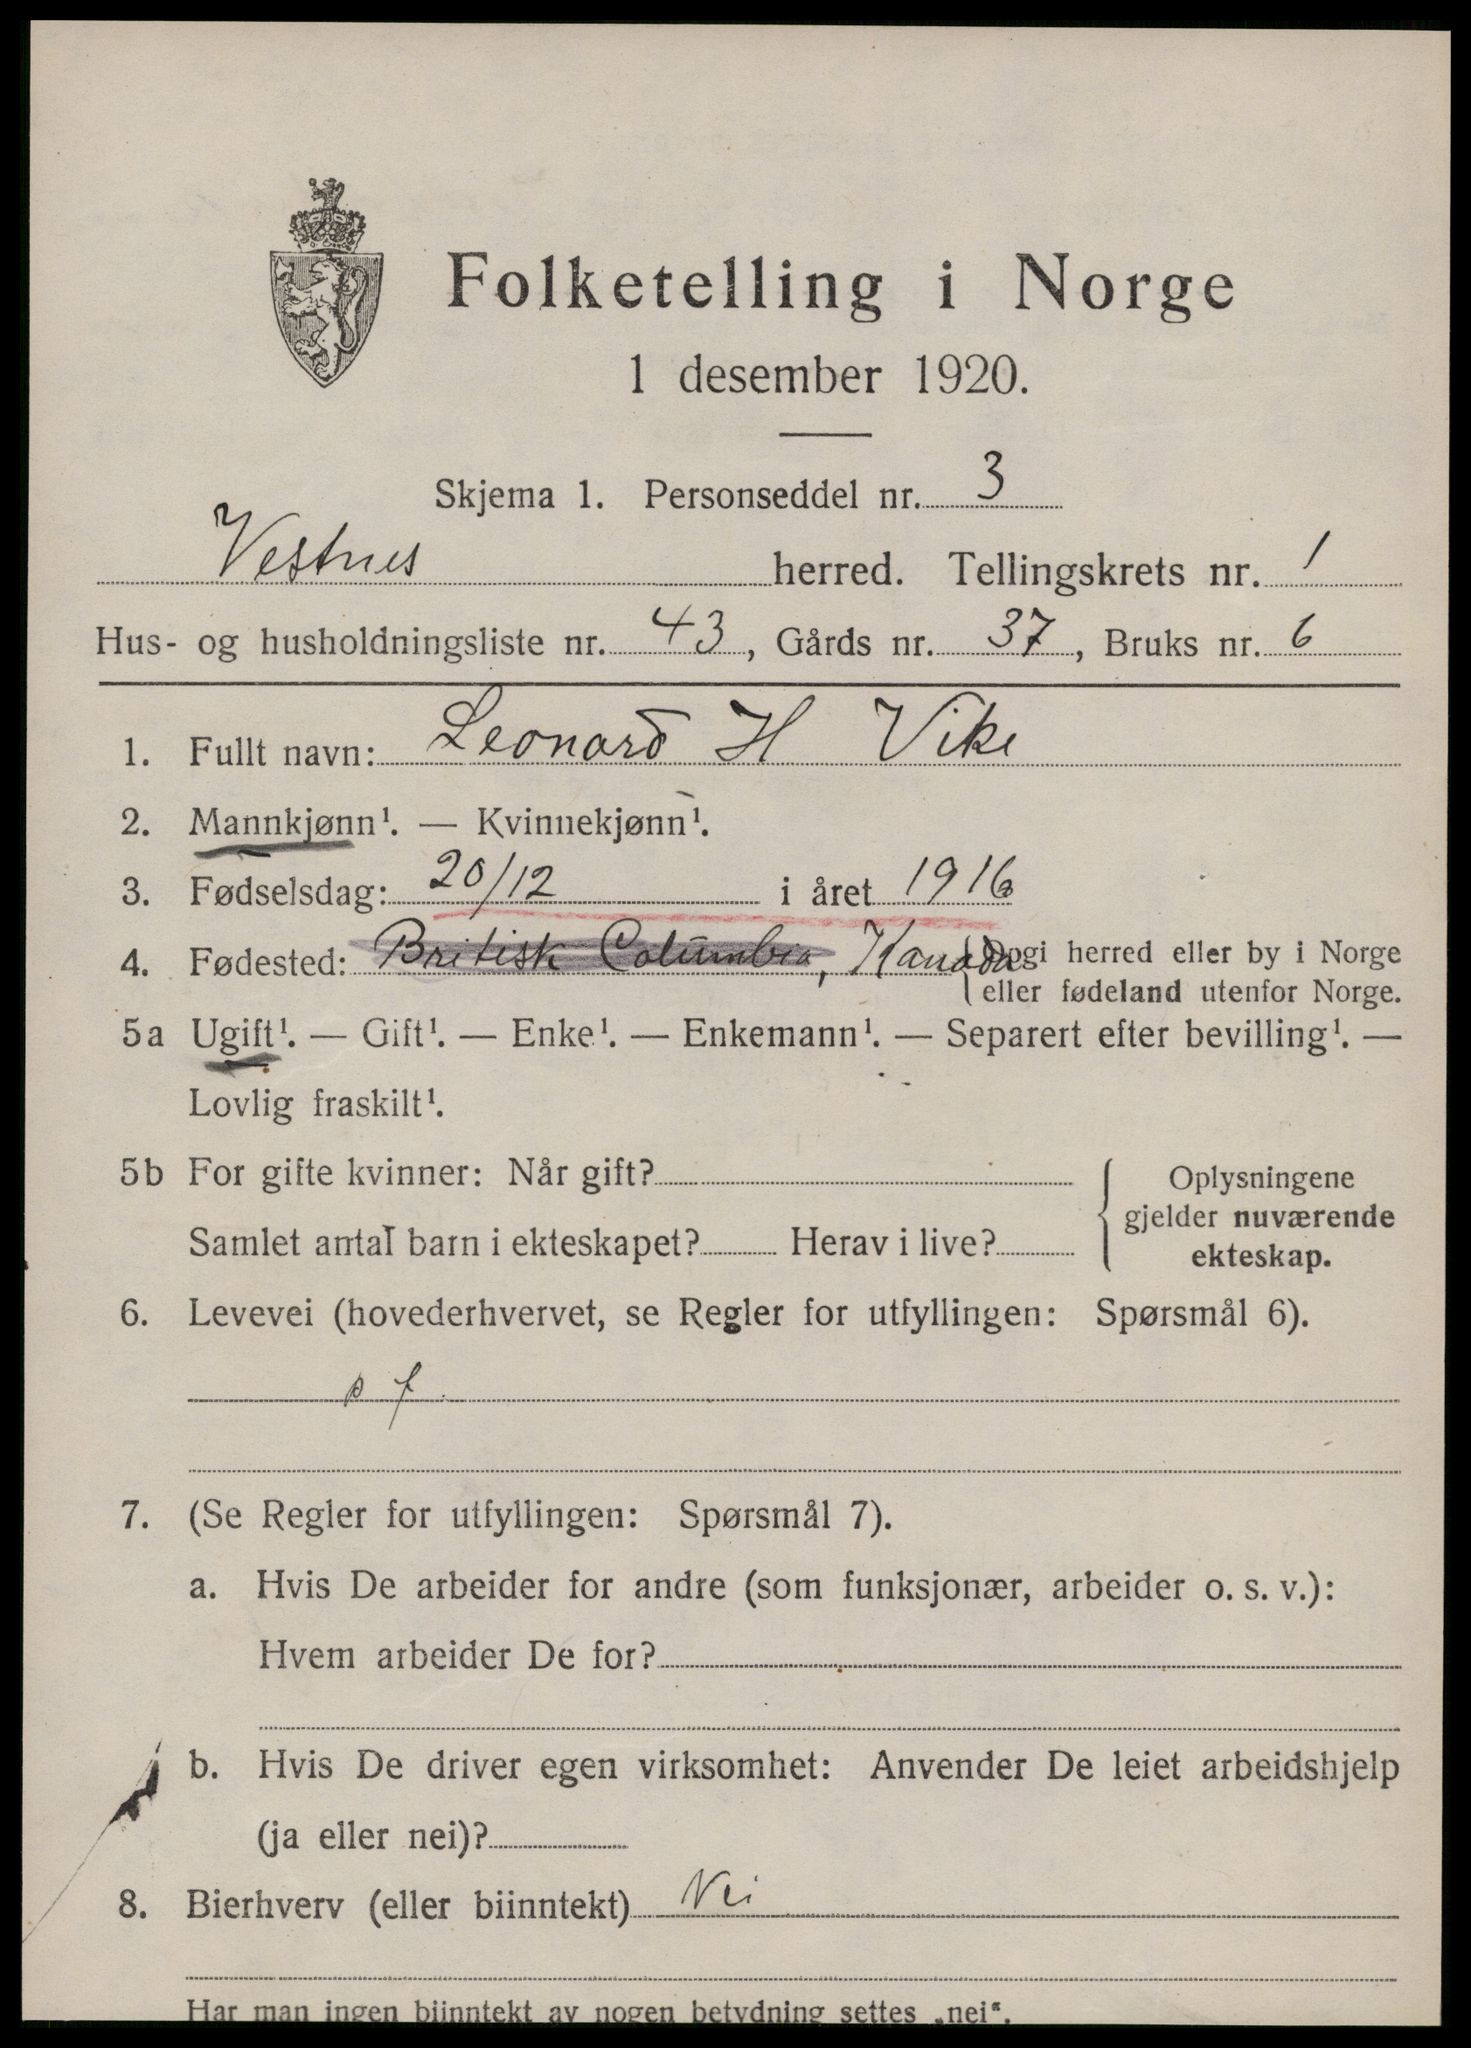 Folketelling i Norge
1 desember 1920.
Skjema 1. Personseddel nr. 3
Vestnes herred. Tellingskrets nr. 1
Hus- og husholdningsliste nr. 43, Gårds nr. 37, Bruks nr. 6
1. Fullt navn: Leonard H Vike
2. Mannkjønn¹. — Kvinnekjønn¹.
3. Fødselsdag: 20/12 i året 1916
4. Fødested: Britisk Columbia, Kanada
Opgi herred eller by i Norge
eller fødeland utenfor Norge.
5a Ugift¹. — Gift¹. — Enke¹. — Enkemann¹. — Separert efter bevilling¹. —
Lovlig fraskilt¹.
5b For gifte kvinner: Når gift?
Samlet antal barn i ekteskapet? Herav i live?
Oplysningene
gjelder nuværende
ekteskap.
6. Levevei (hovederhvervet, se Regler for utfyllingen: Spørsmål 6).
p f
7. (Se Regler for utfyllingen: Spørsmål 7).
a. Hvis De arbeider for andre (som funksjonær, arbeider o. s. v.):
Hvem arbeider De for?
b. Hvis De driver egen virksomhet: Anvender De leiet arbeidshjelp
(ja eller nei)?
8. Bierhverv (eller biinntekt) Nei
Har man ingen biinntekt av nogen betydning settes „nei“.